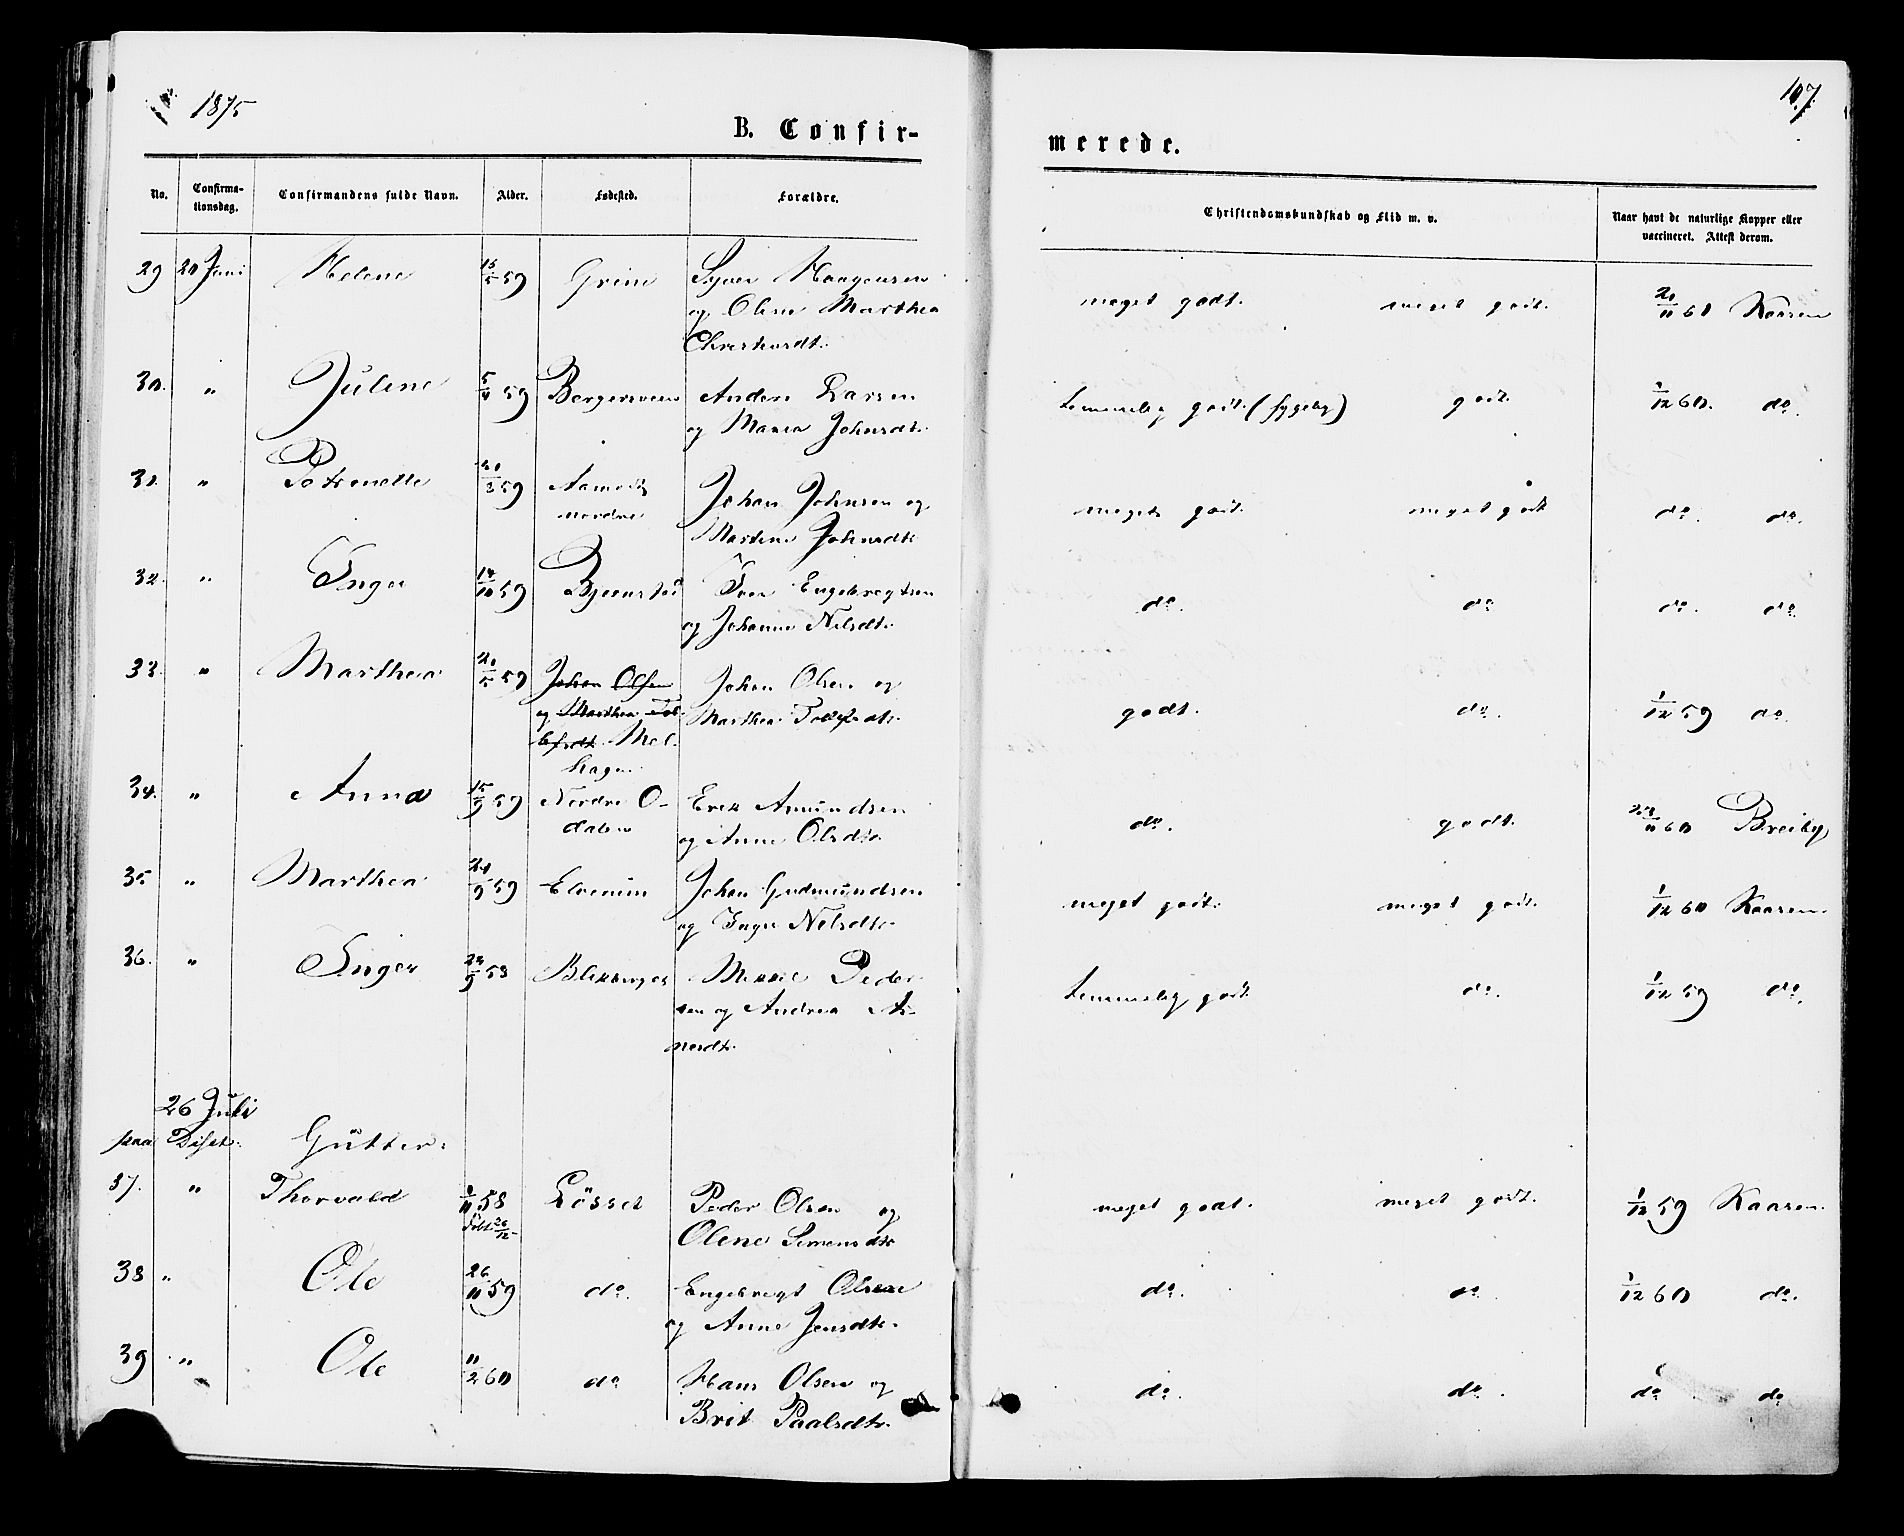 1875
107
B. Confir-
merede.
No.
Confirma-
tionsdag.
Confirmandens fulde Navn.
Alder.
Fødested.
Forældre.
Christendomskundskab og Flid m. v.
Naar havt de naturlige Kopper eller
vaccineret. Attest derom.
29 20 Juni Helene 15/5 59 Grim Syver Haagensen
og Oline Marthea
meget godt. meget godt. 60 Kaasen
30. " Julene 59 Bergersveen Anders Larsen
og Maria Johnsdtr.
temmelig godt. (sygelig) godt. 1/12 60. do.
31. " Petronelle 59 Aamodt
nordre
Johan Johnsen og
Martine Johnsdtr
meget godt. meget godt do. do.
32. " Inger 59 Iver Engebregtsen
og Johanne Nilsdtr.
do. do do. do
33. " Marthea 59 Johan Olsen
og Marthea Tol-
lefsdt. Mel-
hagen.
Johan Olsen og
Marthea Tollefsdtr.
godt. do. 1/12 59 do.
34. " Anna 15/9 59 Nordre O-
dalen
Erik Amundsen
og Anne Olsdtr.
do. godt. 60 Breiby
35 " Marthea 59 Elverum Johan Gudmundsen
og Inger Nilsdtr.
meget godt. meget godt. 1/12 60 Kaasen.
36. " Inger Mikkel Peder-
sen og Andrea Ar-
nesdtr.
temmelig godt do. 1/12 59 do.
26 Juli
paa Diset. Gutter.
37. " Thorvald 1/11 58 Løsset Peder Olsen og
Olene Simensdtr
meget godt. meget godt. 1/12 59 Kaasen.
38 " Ole 26/11 59 do. Engebregt Olsen
og Anne Jensdtr.
do. do. 1/12 60 do.
39 " Ole 11/2 60 do Hans Olsen og
Brit Paalsdtr.
do. do. do do